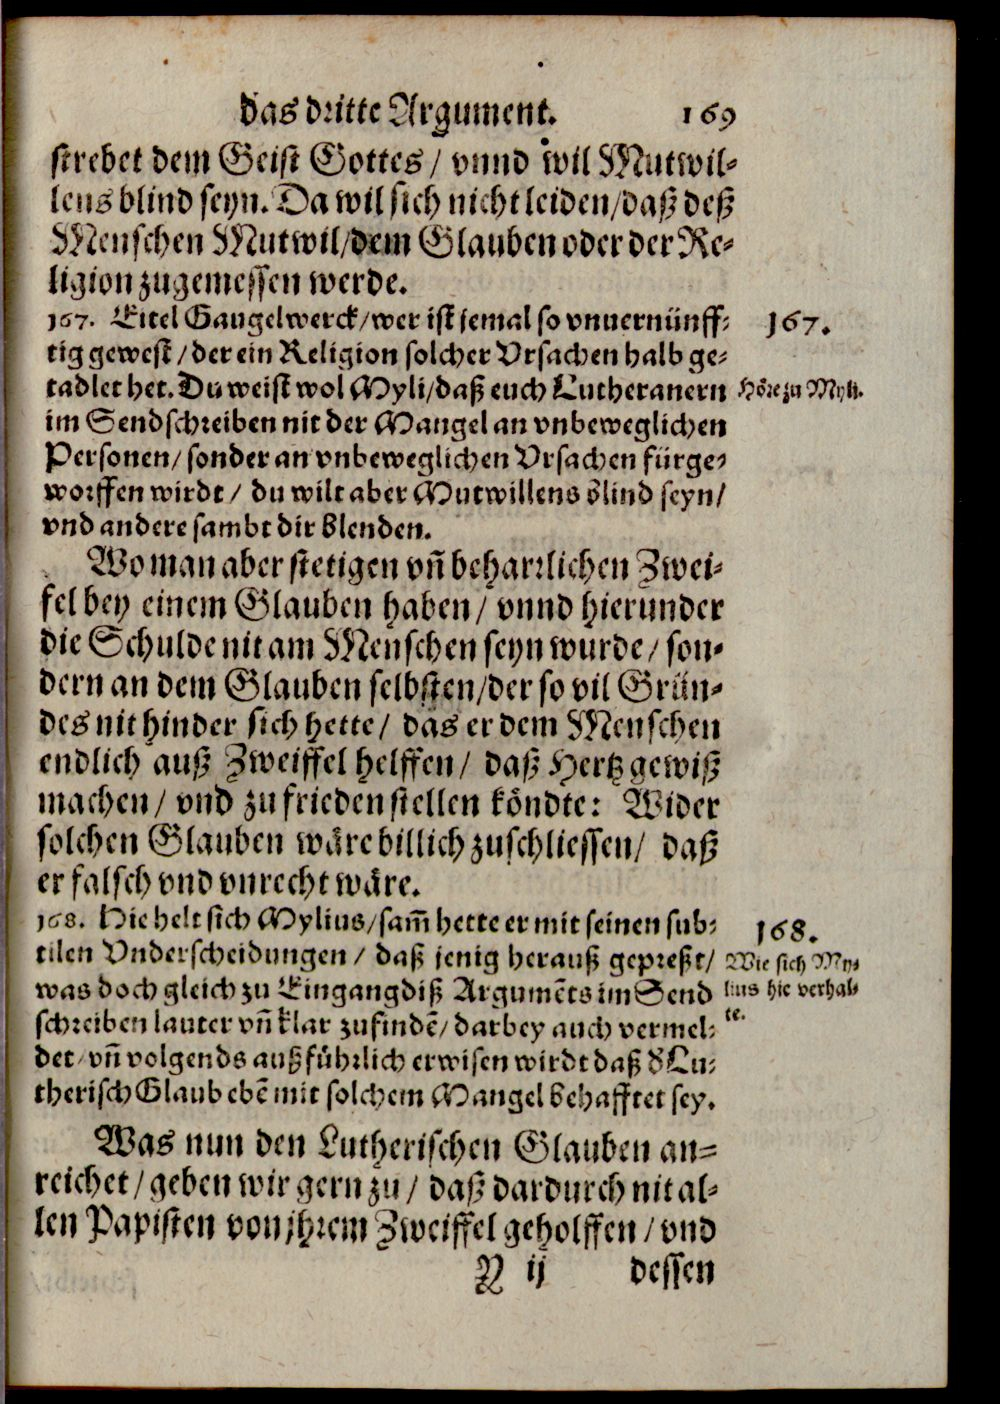 das dritte Argument. 169
strebet dem Geist Gottes / vnnd wil Mutwil-
lens blind seyn. Da wil sich nicht leiden/daß deß
Menschen Mutwil/dem Glauben oder der Re-
ligion zugemessen werde.
167. Eitel Gaugelwerck/wer ist jemal so vnuernünff- 167.
tig gewest / der ein Religion solcher Vrsachen halb ge-
tadlet het. Du weist wol Myli/daß euch Lutheranern Höre zu Myli.
im Sendschreiben nit der Mangel an vnbeweglichen
Personen/ sonder an vnbeweglichen Vrsachen fürge-
worffen wirdt / du wilt aber Mutwillens blind seyn/
vnd andere sambt dir blenden.
Wo man aber stetigen vn̄ beharrlichen Zwei-
fel bey einem Glauben haben / vnnd hierunder
die Schulde nit am Menschen seyn wurde / son-
dern an dem Glauben selbsten/der so vil Grün-
des nit hinder sich hette / das er dem Menschen
endlich auß Zweiffel helffen / daß Hertz gewiß
machen / vnd zu frieden stellen köndte: Wider
solchen Glauben wäre billich zuschliessen/ daß
er falsch vnd vnrecht wäre.
168. Hie helt sich Mylius/sam̄ hette er mit seinen sub- 168.
tilen Vnderscheidungen / daß jenig herauß gepreßt/ Wie sich My-
was doch gleich zu Eingang diß Argumēts im Send lius hie verhal-
schreiben lauter vn̄ klar zufindē/ darbey auch vermel- te.
det / vn̄ volgends außführlich erwisen wirdt daß d' Lu-
therisch Glaub ebē mit solchem Mangel behafftet sey.
Was nun den Lutherischen Glauben an-
reichet / geben wir gern zu / daß dardurch nit al-
len Papisten von jhrem Zweiffel geholffen / vnd
Y ij dessen